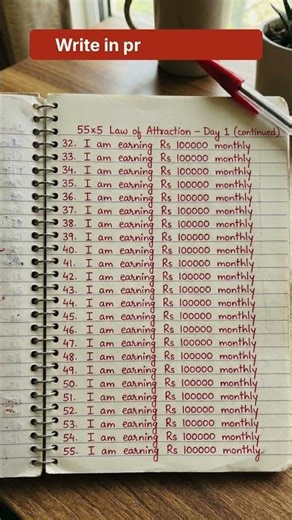 Write in pr
55x5 Law of Attraction - Day 1 (continued)
32. I am earning Rs 100000 monthly
33. I am earning Rs 100000 monthly
34. I am earning Rs 100000 monthly
35. I am earning Rs 100000 monthly
36. I am earning Rs 100000 monthly
37. I am earning Rs 100000 monthly
38. I am earning Rs 100000 monthly
39. I am earning Rs 100000 monthly
40. I am earning Rs 100000 monthly
41. I am earning Rs 100000 monthly
42. I am earning Rs 100000 monthly
43. I am earning Rs 100000 monthly
44. I am earning Rs 100000 monthly
45. I am earning Rs 100000 monthly
46. I am earning Rs 100000 monthly
47. I am earning Rs 100000 monthly
48. I am earning Rs 100000 monthly
49. I am earning Rs 100000 monthly
50. I am earning Rs 100000 monthly
51. I am earning Rs 100000 monthly
52. I am earning Rs 100000 monthly
53. I am earning Rs 100000 monthly
54. I am earning Rs 100000 monthly
55. I am earning Rs 100000 monthly